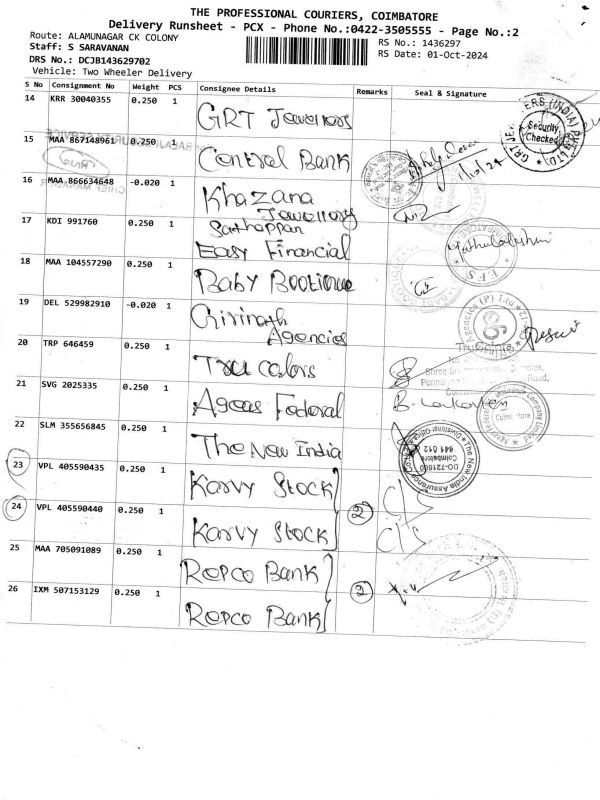 THE PROFESSIONAL COURIERS, COIMBATORE
Delivery Runsheet - PCX - Phone No.:0422-3505555 - Page No.:2
Route: ALAMUNAGAR CK COLONY
RS No.: 1436297
Staff: S SARAVANAN
RS Date: 01-Oct-2024
DRS No.: DCJB143629702
Vehicle: Two Wheeler Delivery
S No Consignment No Weight PCS Consignee Details Remarks Seal & Signature
14 KRR 30040355 0.250 1 GRT Jewellers
Security Checked
15 MAA 867148961 0.250 1 Central Bank 1/10/24
16 MAA 866634648 -0.020 1 Khazana
Jewellery
17 KDI 991760 0.250 1 Sathappan
Easy Financial Muthulakshmi
EFS
18 MAA 104557290 0.250 1 Baby Bootique
19 DEL 529982910 -0.020 1 Girinath
Agencies
20 TRP 646459 0.250 1 Tru Colors
21 SVG 2025335 0.250 1 Ageas Federal
Coimbatore
22 SLM 355656845 0.250 1 The New India
The New India Assurance Co. Ltd.
Divisional Office
DO-721600
Coimbatore
641 012
23 VPL 405590435 0.250 1 Karvy Stock
24 VPL 405590440 0.250 1 Karvy Stock 2 C/S
C/S
25 MAA 705091089 0.250 1 Repco Bank
26 IXM 507153129 0.250 1 Repco Bank 2